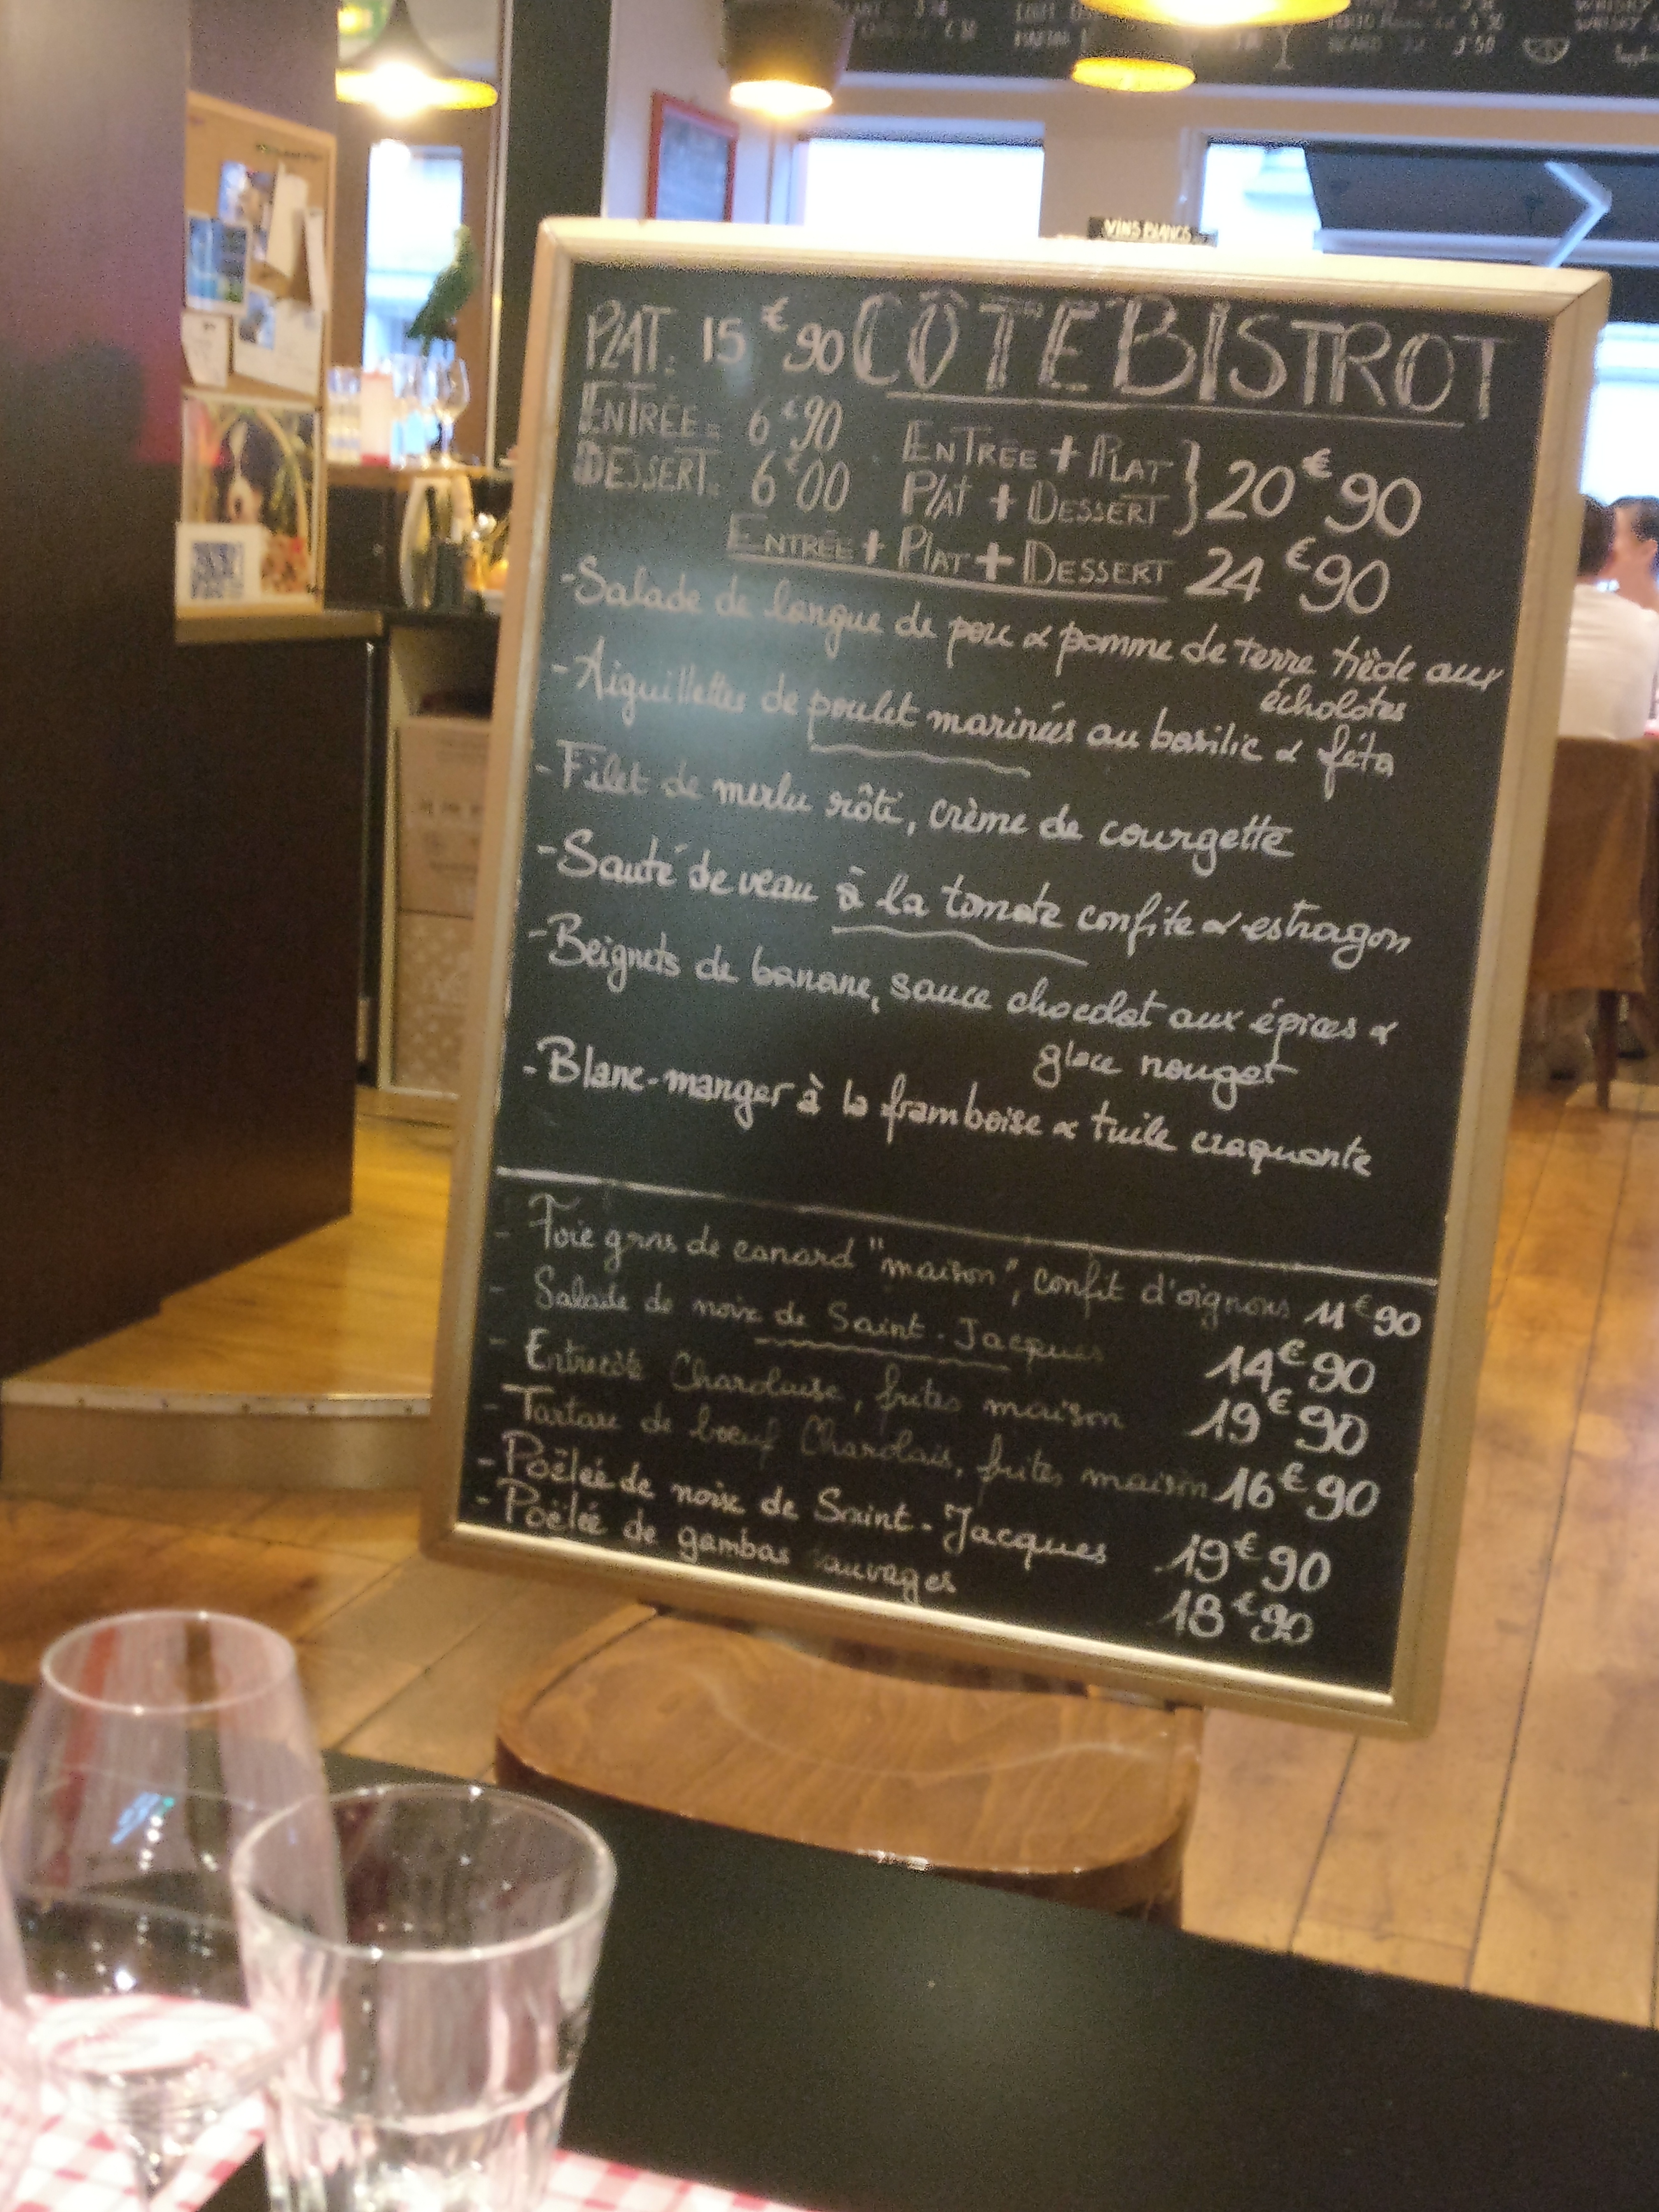 VINS BLANCS
CÔTÉ BISTROT
PLAT: 15€90
ENTRÉE: 6€90
DESSERT: 6€00
ENTRÉE + PLAT
PLAT + DESSERT } 20€90
ENTRÉE + PLAT + DESSERT 24€90
- Salade de langue de porc & pomme de terre tiède aux
écholotes
- Aiguillettes de poulet marinées au basilic & féta
- Filet de merlu rôti, crème de courgette
- Sauté de veau à la tomate confite & estragon
- Beignets de banane, sauce chocolat aux épices &
glace nougat
- Blanc-manger à la framboise & tuile craquante
- Foie gras de canard "maison", confit d'oignons 11€90
- Salade de noix de Saint-Jacques 14€90
- Entrecôte Charolaise, frites maison 19€90
- Tartare de boeuf Charolais, frites maison 16€90
- Poëlée de noix de Saint-Jacques 19€90
- Poëlée de gambas sauvages 18€90